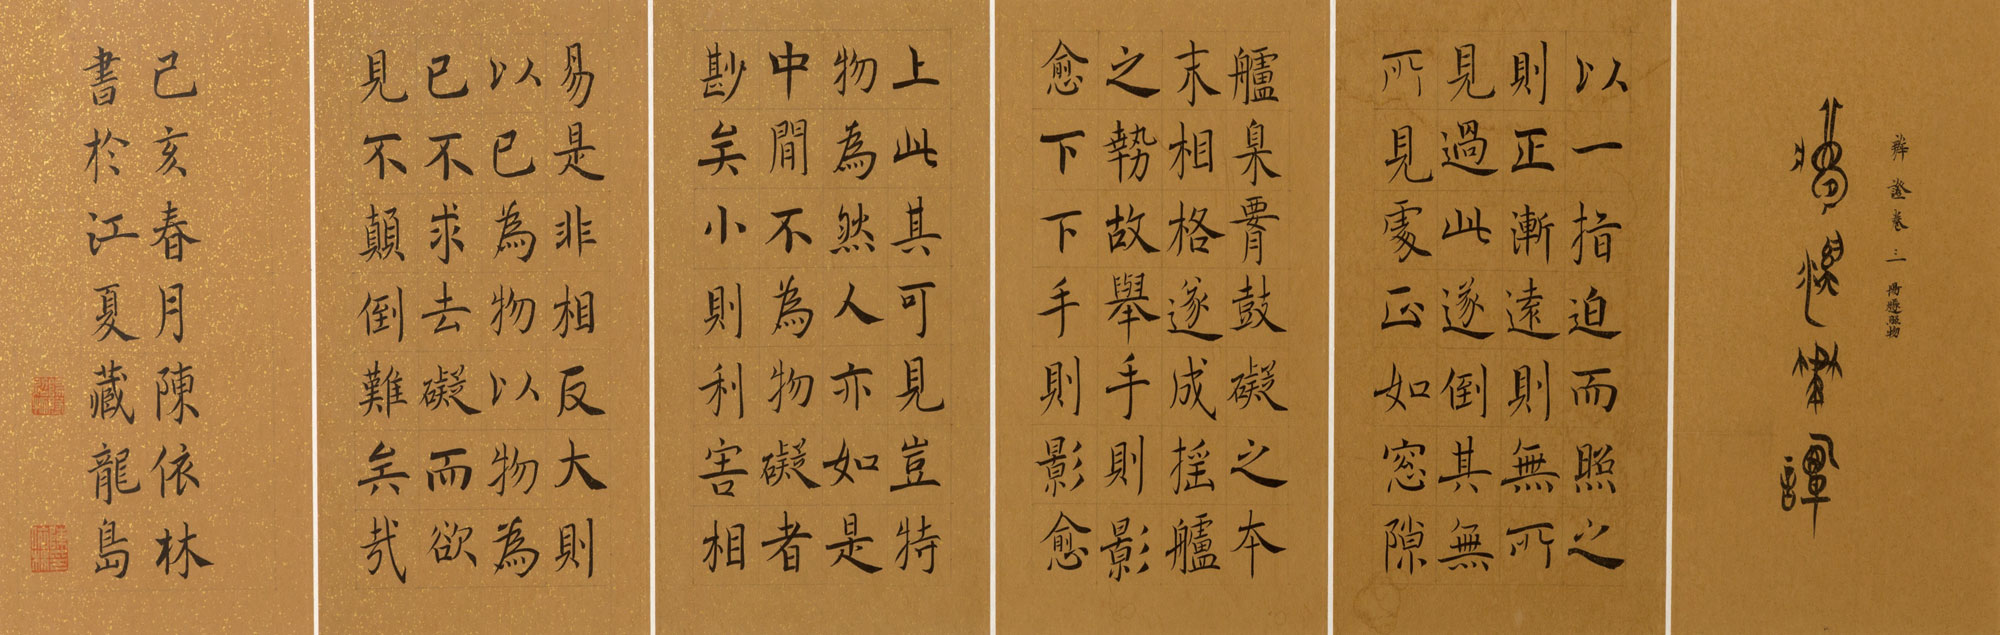 夢溪筆譚
辨證卷三 陽燧照物
以一指迫而照之
則正漸遠則無所
見過此遂倒其無
所見處正如窓隙
艫臬腰鼓礙之本
末相格遂成揺艫
之勢故舉手則影
愈下下手則影愈
上此其可見豈特
物為然人亦如是
中間不為物礙者
尠矣小則利害相
易是非相反大則
以已為物以物為
已不求去礙而欲
見不顛倒難矣哉
己亥春月陳依林
書於江夏藏龍島